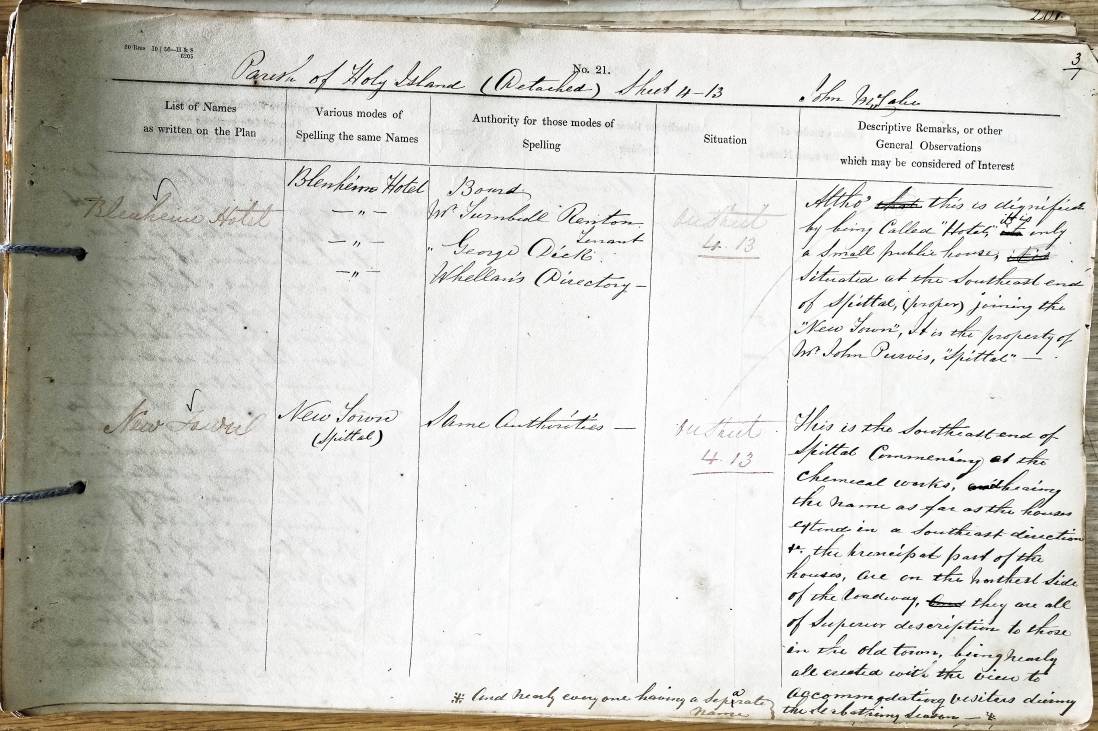 201
3
7
20 Rms 10 | 56—H & S
6205
No. 21.
Parish of Holy Island (Detached) Sheet 4-13
List of Names
as written on the Plan
Various modes of
Spelling the same Names
Authority for those modes of
Spelling
Situation
Descriptive Remarks, or other
General Observations
which may be considered of Interest
Blenheim Hotel
Blenheim Hotel
— " —
— " —
— " —
Board
Mr Turnbull Renton
" George Dick Tenant
Whellan's Directory —
On Sheet
4.13
Altho' this is dignified
by being Called "Hotel" it is only
a Small public house,
Situated at the Southeast end
of Spittal, (proper) joining the
"New Town", It is the property of
Mr John Purvis, "Spittal" —
New Town
New Town
(Spittal)
Same Authorities —
On Sheet
4.13
This is the Southeast end of
Spittal Commencing at the
Chemical works, and bearing
the Name as far as the houses
extend in a Southeast direction
&. the principal part of the
houses, are on the Northest Side
of the roadway, and they are all
of Superior description to those
in the old town, being nearly
all erected with the view to
accommodating visiters during
the bathing season — *
* And nearly every one having a separate
name